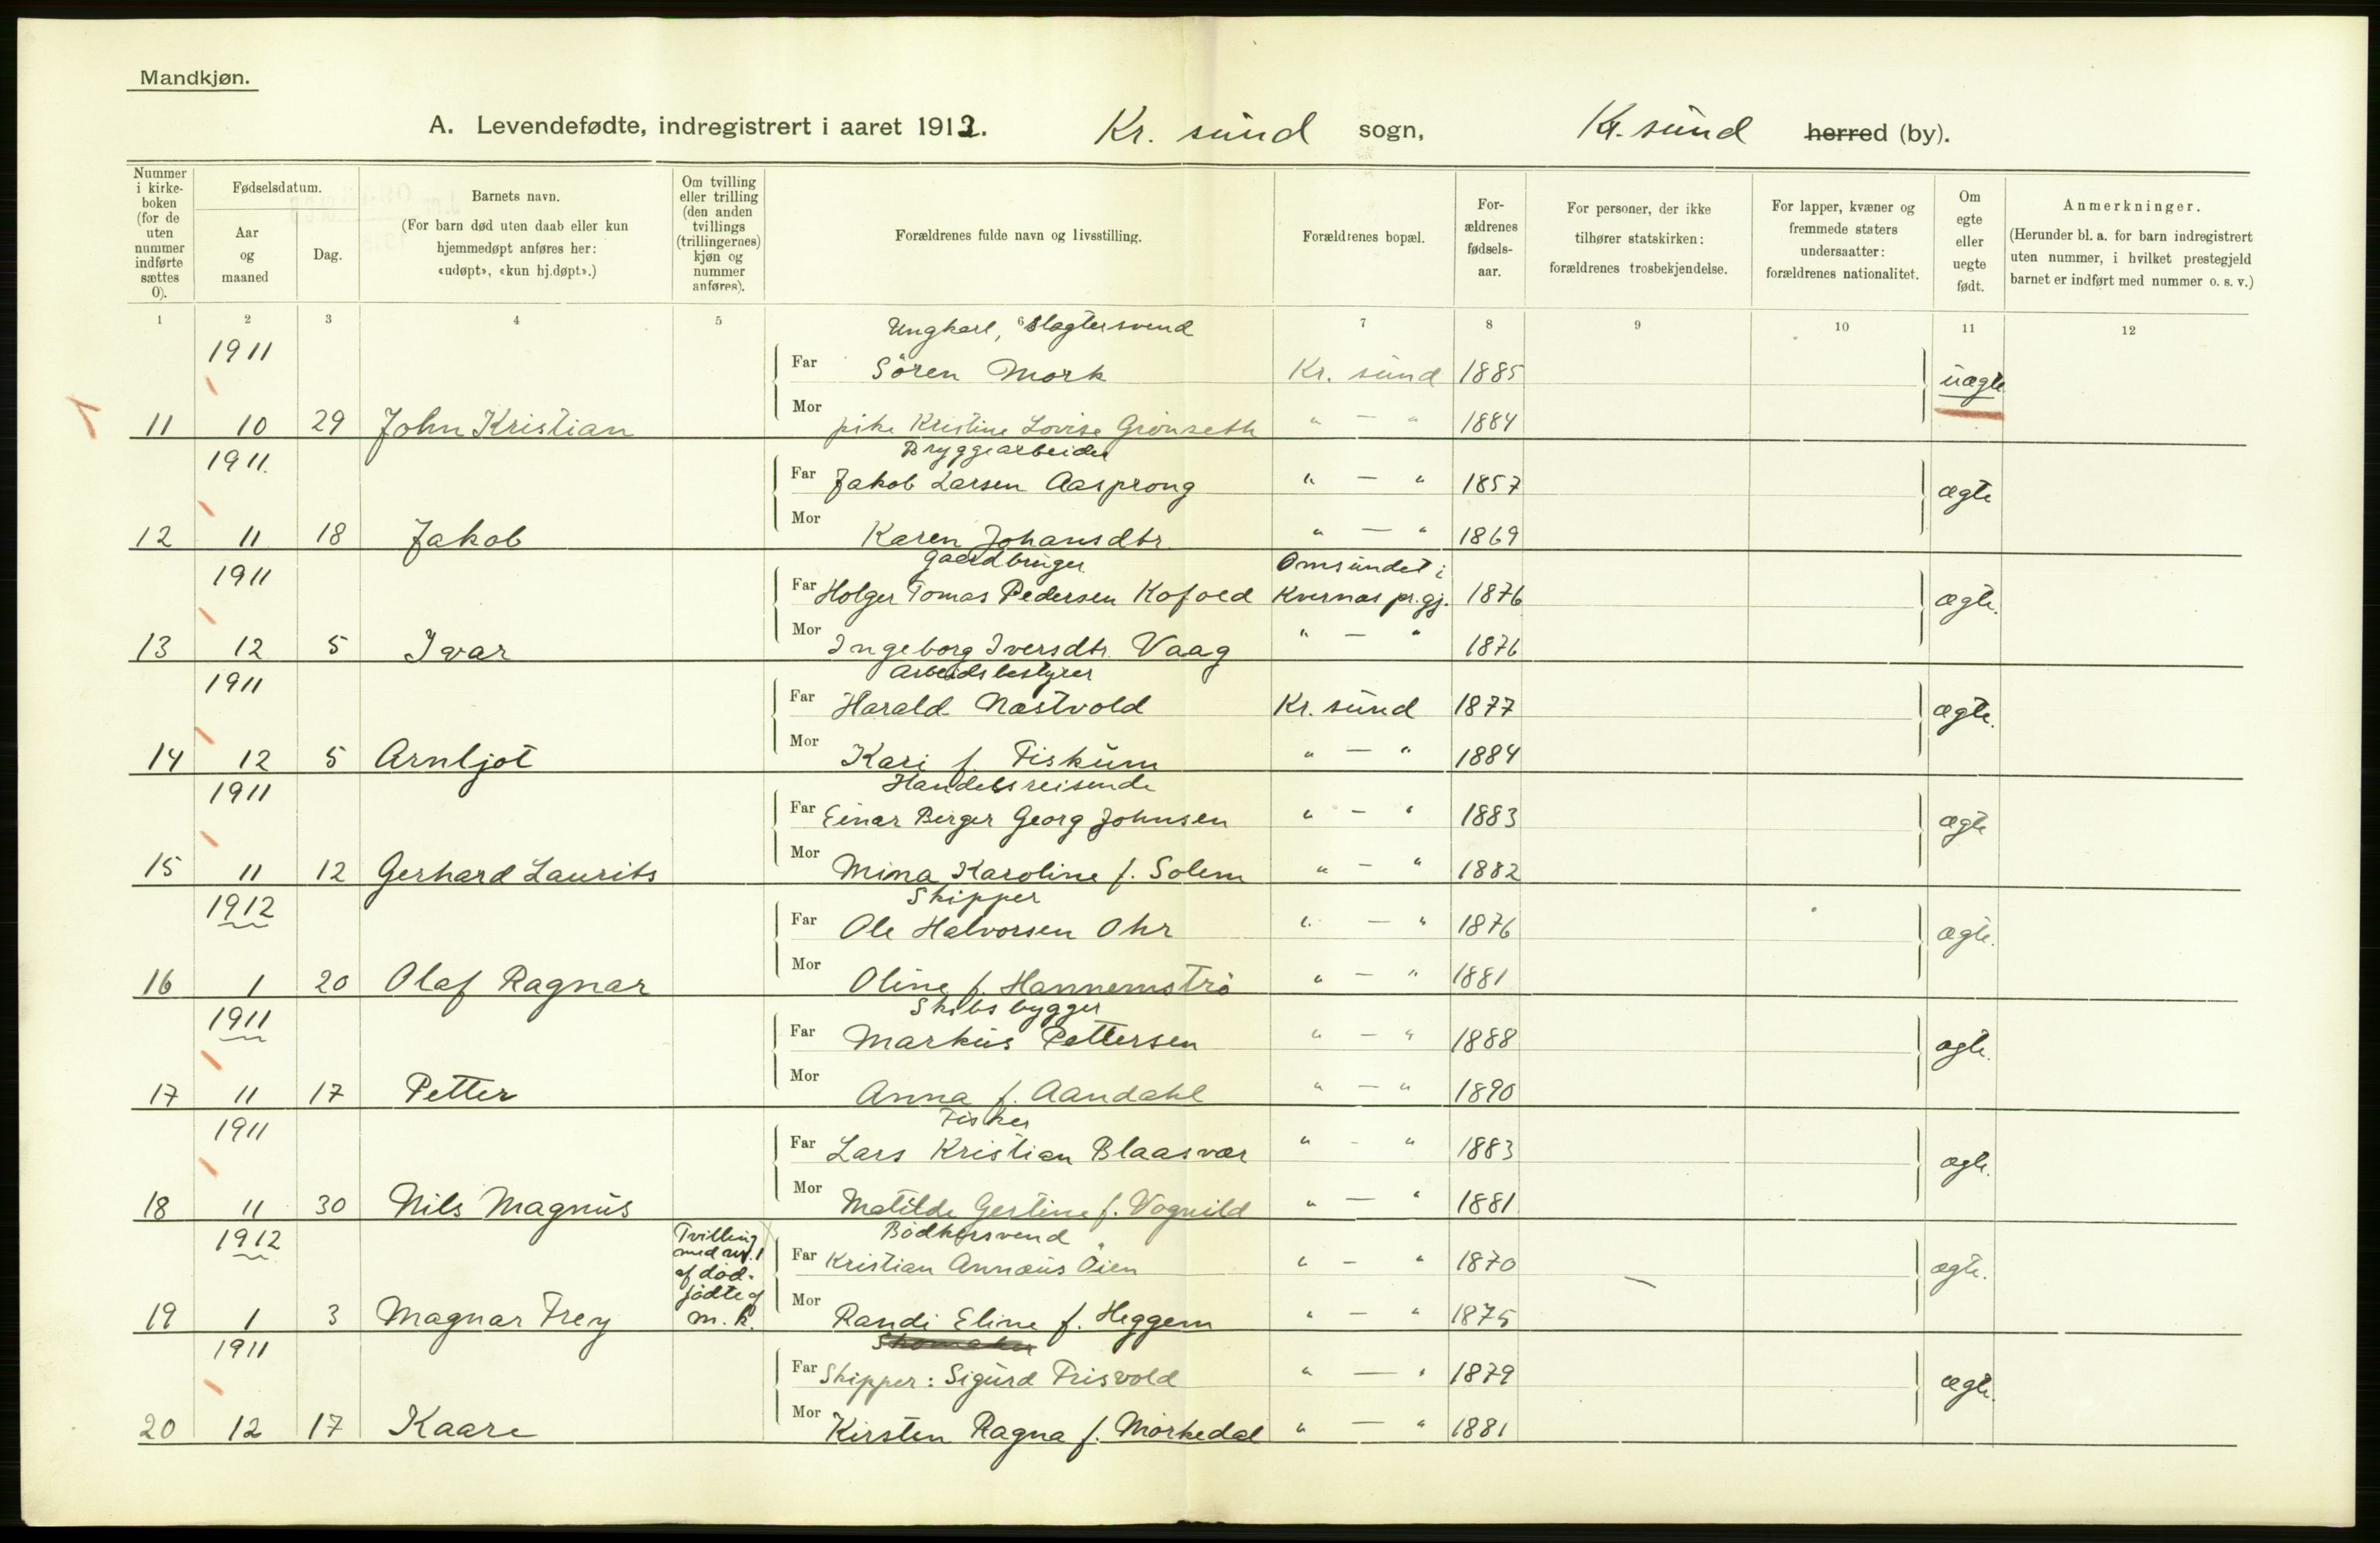 Mandkjøn.
A. Levendefødte, indregistrert i aaret 1912. Kr. sund sogn, Kr. sund herred (by).
Nummer i kirke- boken (for de uten nummer indførte sættes 0).
Fødselsdatum.
Aar og maaned
Dag.
Barnets navn.
(For barn død uten daab eller kun hjemmedøpt anføres her: «udøpt», «kun hj.døpt».)
Om tvilling eller trilling (den anden tvillings (trillingernes) kjøn og nummer anføres).
Forældrenes fulde navn og livsstilling.
Forældrenes bopæl.
For- ældrenes fødsels- aar.
For personer, der ikke tilhører statskirken: forældrenes trosbekjendelse.
For lapper, kvæner og fremmede staters undersaatter: forældrenes nationalitet.
Om egte eller uegte født.
Anmerkninger.
(Herunder bl. a. for barn indregistrert uten nummer, i hvilket prestegjeld barnet er indført med nummer o. s. v.)
1 2 3 4 5 6 7 8 9 10 11 12
1911 Ungkarl, Slagtersvend
Far Sören Mork Kr. sund 1885 uægte
Mor pike Kristine Lovise Grönseth " — " 1884
11 10 29 John Kristian
1911 Bryggearbeider
Far Jakob Larsen Aasprong " — " 1857 ægte
12 11 18 Jakob Mor Karen Johansdtr. " — " 1869
1911 Gaardbruger Omsundet i
Far Holger Tomas Pedersen Kofoed Kvernes pr.gj. 1876 ægte.
13 12 5 Ivar Mor Ingeborg Iversdtr. Vaag " — " 1876
1911 Arbeidsbestyrer
Far Harald Næstvold Kr. sund 1877 ægte.
14 12 5 Arnljot Mor Kari f. Fiskum " — " 1884
1911 Handelsreisende
Far Einar Berger Georg Johnsen " — " 1883 ægte
15 11 12 Gerhard Laurits Mor Mina Karoline f. Solem " — " 1882
1912 Skipper
Far Ole Halvorsen Ohr " — " 1876 ægte.
16 1 20 Olaf Ragnar Mor Oline f. Hannemströ " — " 1881
1911 Skibsbygger
Far Markus Pettersen " — " 1888 ægte.
17 11 17 Petter Mor Anna f. Aandahl " — " 1890
1911 Fisker
Far Lars Kristian Blaasvær " - " 1883 ægte.
18 11 30 Nils Magnus Mor Matilde Gertine f. Vognild " — " 1881
1912 Tvilling med nr. 1 af död- födte af m. k. Bödkersvend
Far Kristian Annæus Öien " — " 1870 ægte.
19 1 3 Magnar Frey Mor Randi Eline f. Heggem " — " 1875
1911 Skomaker
Far Skipper: Sigurd Frisvold " — " 1879 ægte.
20 12 17 Kaare Mor Kirsten Ragna f. Mörkedal " — " 1881